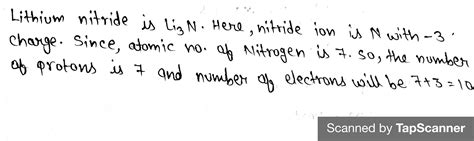 Lithium nitride is Li₃N. Here, nitride ion is N with -3
charge. Since, atomic no. of Nitrogen is 7. So, the number
of protons is 7 and number of electrons will be 7+3 = 10
Scanned by TapScanner